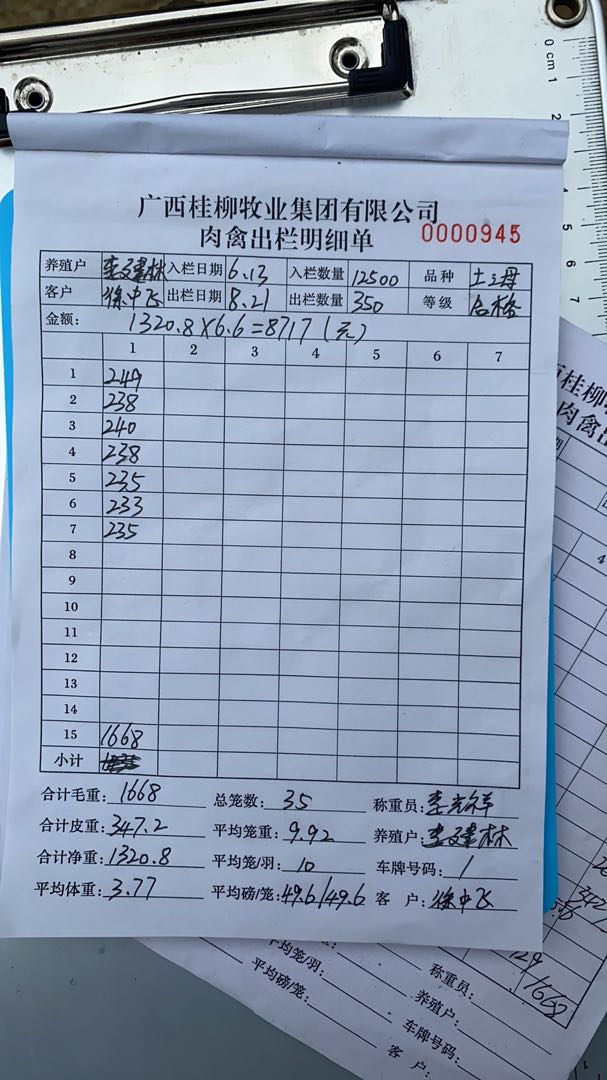 广西桂柳牧业集团有限公司
肉禽出栏明细单 0000945
养殖户 李建林 入栏日期 6.13 入栏数量 12500 品种 土2母
客户 徐中飞 出栏日期 8.21 出栏数量 350 等级 合格
金额: 1320.8×6.6=8717(元)
1 2 3 4 5 6 7
1 249
2 238
3 240
4 238
5 235
6 233
7 235
8
9
10
11
12
13
14
15 1668
小计
合计毛重: 1668 总笼数: 35 称重员:
合计皮重: 347.2 平均笼重: 9.92 养殖户: 李建林
合计净重: 1320.8 平均笼/羽: 10 车牌号码: 1
平均体重: 3.77 平均磅/笼: 49.6/49.6 客 户: 徐中飞
桂柳牧
肉禽出
4
129
1668
平均笼/羽: 称重员:
平均磅/笼: 养殖户:
车牌号码:
客 户:
0 cm 1
2
3
4
5
6
7